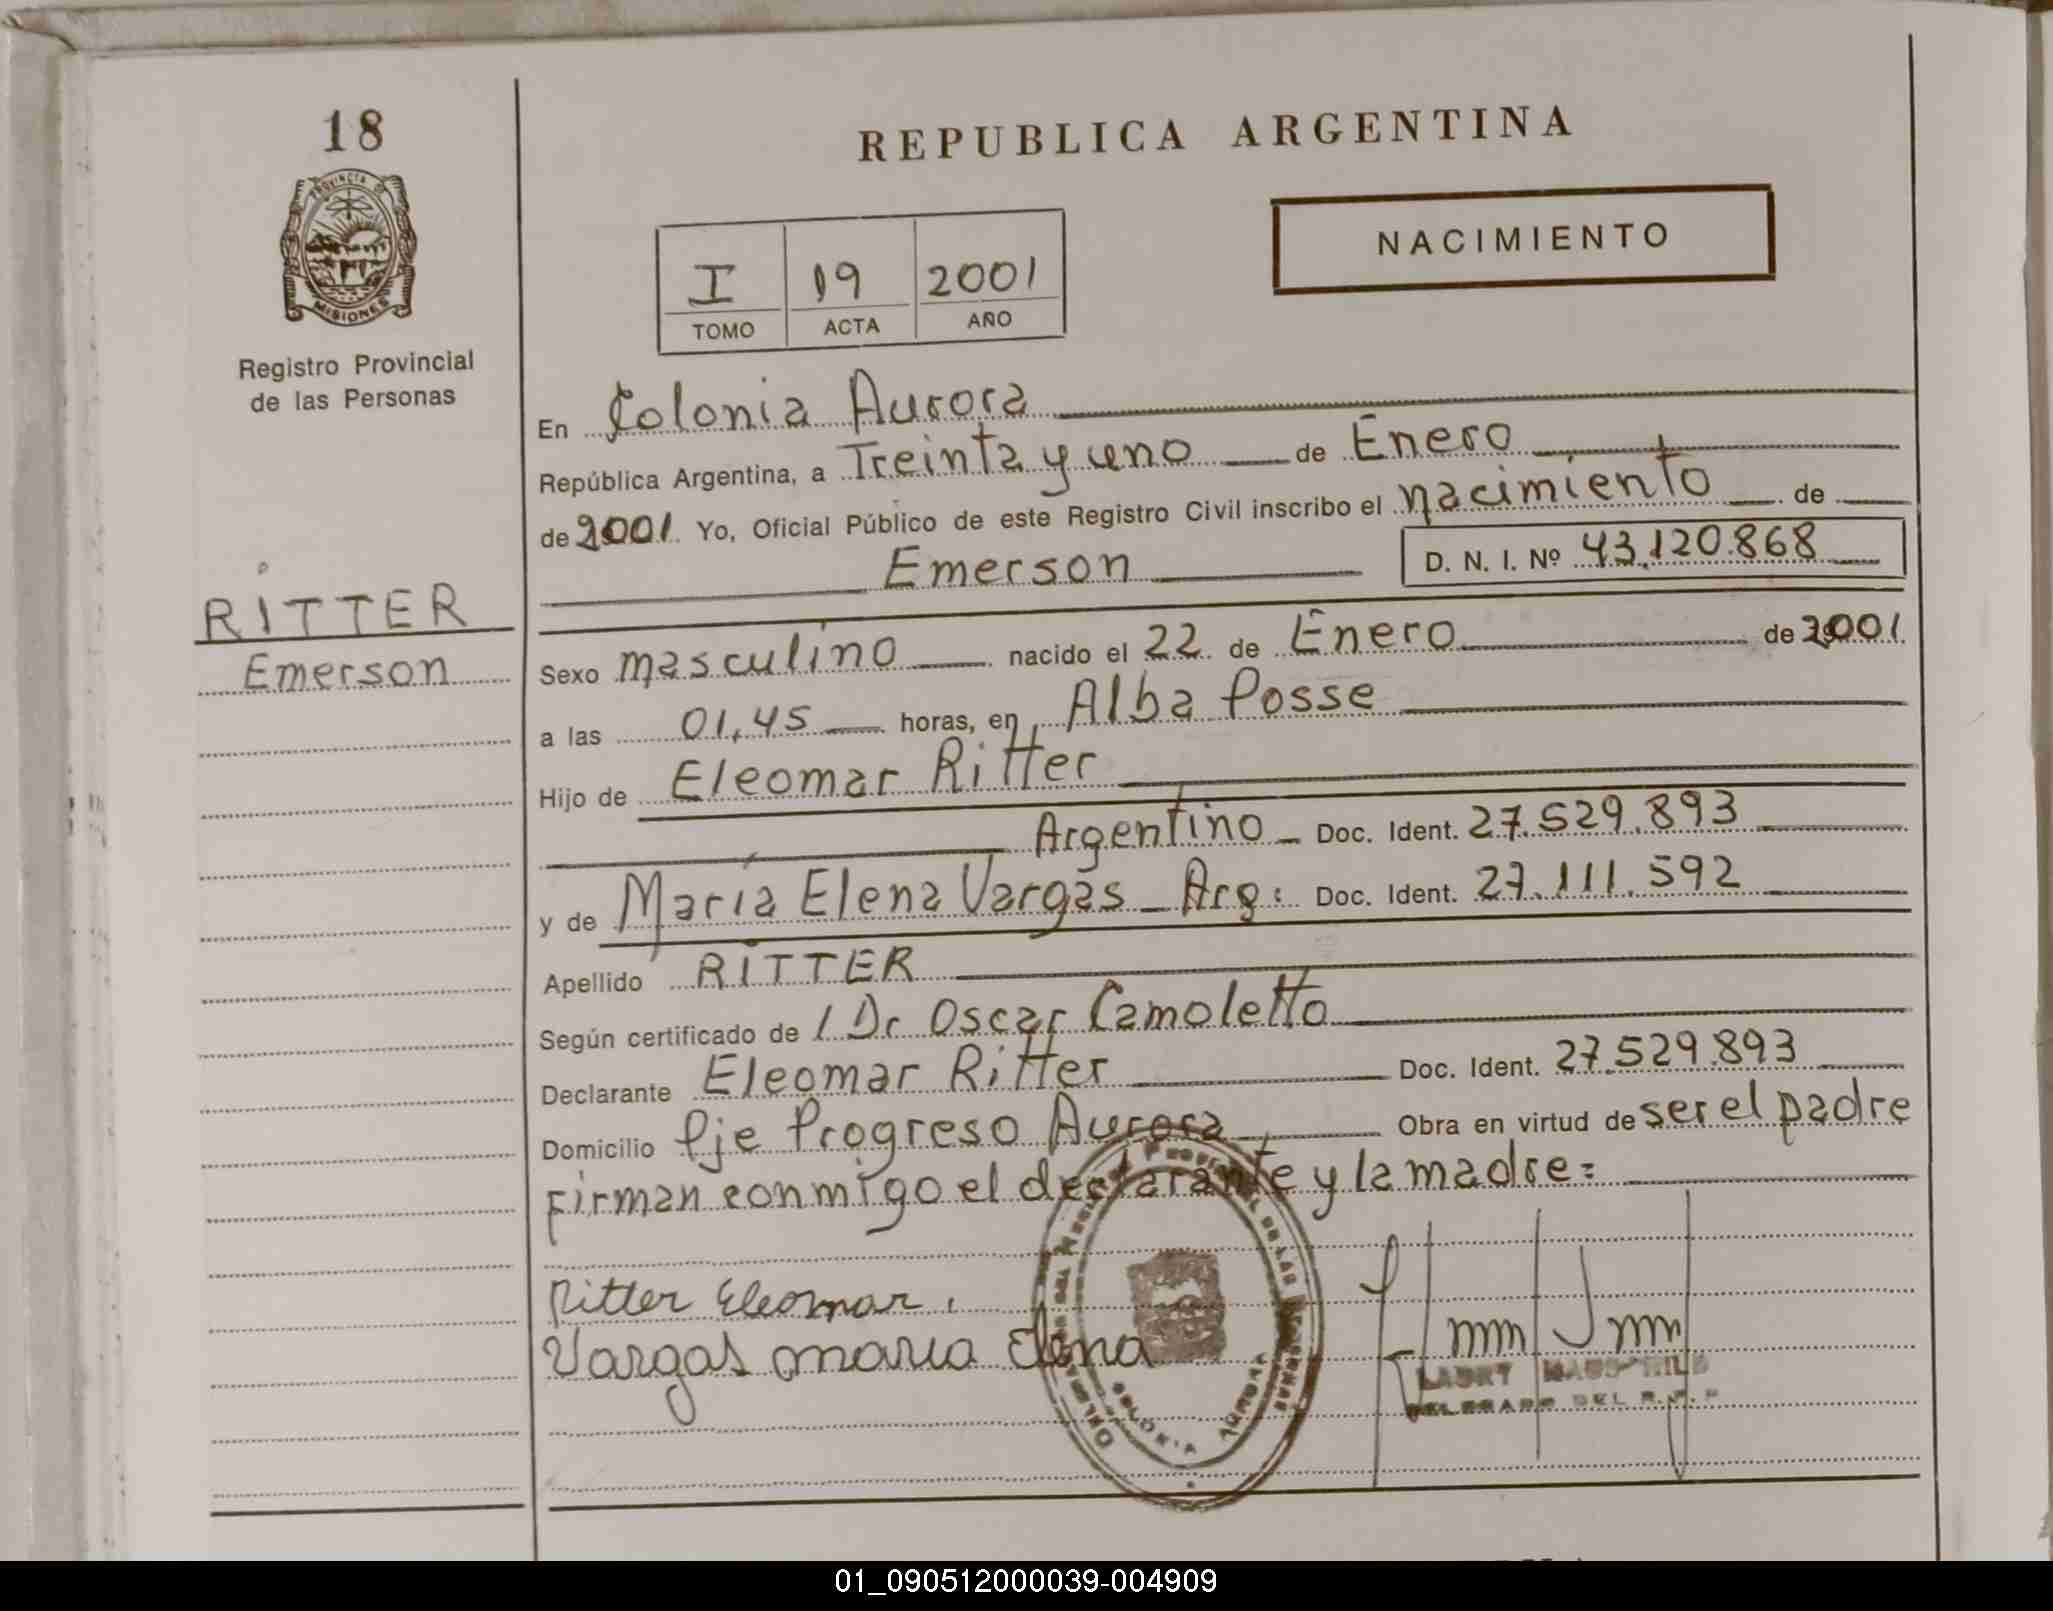 18
PROVINCIA DE
MISIONES
Registro Provincial
de las Personas
RITTER
Emerson
REPUBLICA ARGENTINA
NACIMIENTO
I 19 2001
TOMO ACTA AÑO
En Colonia Aurora
República Argentina, a Treinta y uno de Enero
de 2001 Yo, Oficial Público de este Registro Civil inscribo el nacimiento de
Emerson D. N. I. Nº 43.120.868
Sexo masculino nacido el 22 de Enero de 2001
a las 01,45 horas, en Alba Posse
Hijo de Eleomar Ritter
Argentino Doc. Ident. 27.529.893
y de María Elena Vargas Arg: Doc. Ident. 27.111.592
Apellido RITTER
Según certificado de l Dr Oscar Camoletto
Declarante Eleomar Ritter Doc. Ident. 27.529.893
Domicilio Pje Progreso Aurora Obra en virtud de ser el padre
Firman conmigo el declarante y la madre=
Ritter Eleomar.
Vargas maria Elena
COLONIA AURORA
DELEGADO DEL R.P.P
01_090512000039-004909